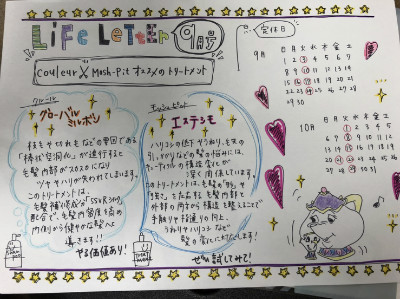 LiFe LeTTeR 9月号
定休日
couleur X Mash-Pit オススメのトリートメント
クルール
グローバル
ミルボン
枝毛や切れ毛などの要因である
「棒状空洞化」が進行すると
毛髪内部がスカスカになり
ツヤやハリが失われてしまいます。
このトリートメントは、
毛髪補修成分「SSVR-シルク」
配合で、毛髪内部を
内側から健やかな髪へと
導きます!!
やる価値あり!
マッシュピット
エステシモ
ハリコシの低下やうねり、毛先の
引っかかりなどの髪の悩みには、
キューティクルの構造変化が
深く関係しています。
このトリートメントは、毛髪の
毛髪内部と
外部の両方から構造を整えることで
手触りや指通りの向上、
うねりやハリコシなど
髪の変化に対応します!
ぜひ試してみて!
9月
日 月 火 水 木 金 土
1 2 3 4 5 6 7
8 9 10 11 12 13 14
15 16 17 18 19 20 21
22 23 24 25 26 27 28
29 30
10月
日 月 火 水 木 金 土
1 2 3 4 5
6 7 8 9 10 11 12
13 14 15 16 17 18 19
20 21 22 23 24 25 26
27 28 29 30 31